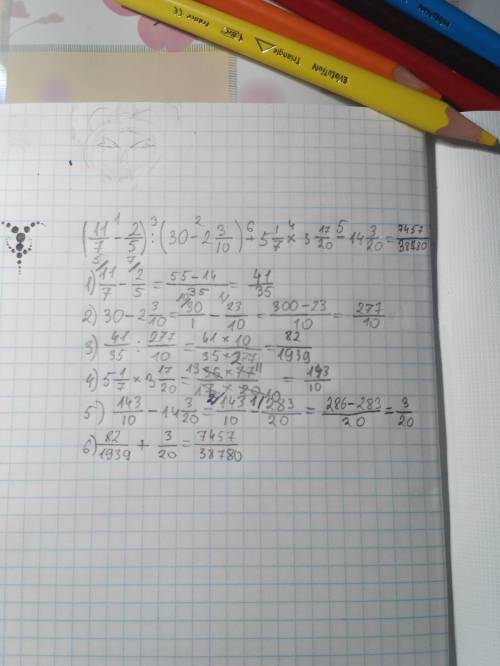 EVOLUTION Triangle BIC FRANCE
EVOLUTION
(11/7 - 2/5) : (30 - 2 3/10) + 5 1/7 × 3 17/20 - 14 3/20 = 7457/38780
1) 11/7 - 2/5 = 55-14/35 = 41/35
2) 30 - 2 3/10 = 30/1 - 23/10 = 300-23/10 = 277/10
3) 41/35 : 277/10 = 41 × 10/35 × 277 = 82/1939
4) 5 1/7 × 3 17/20 = 36 × 77/7 × 20 = 143/10
5) 143/10 - 14 3/20 = 143/10 - 283/20 = 286-283/20 = 3/20
6) 82/1939 + 3/20 = 7457/38780